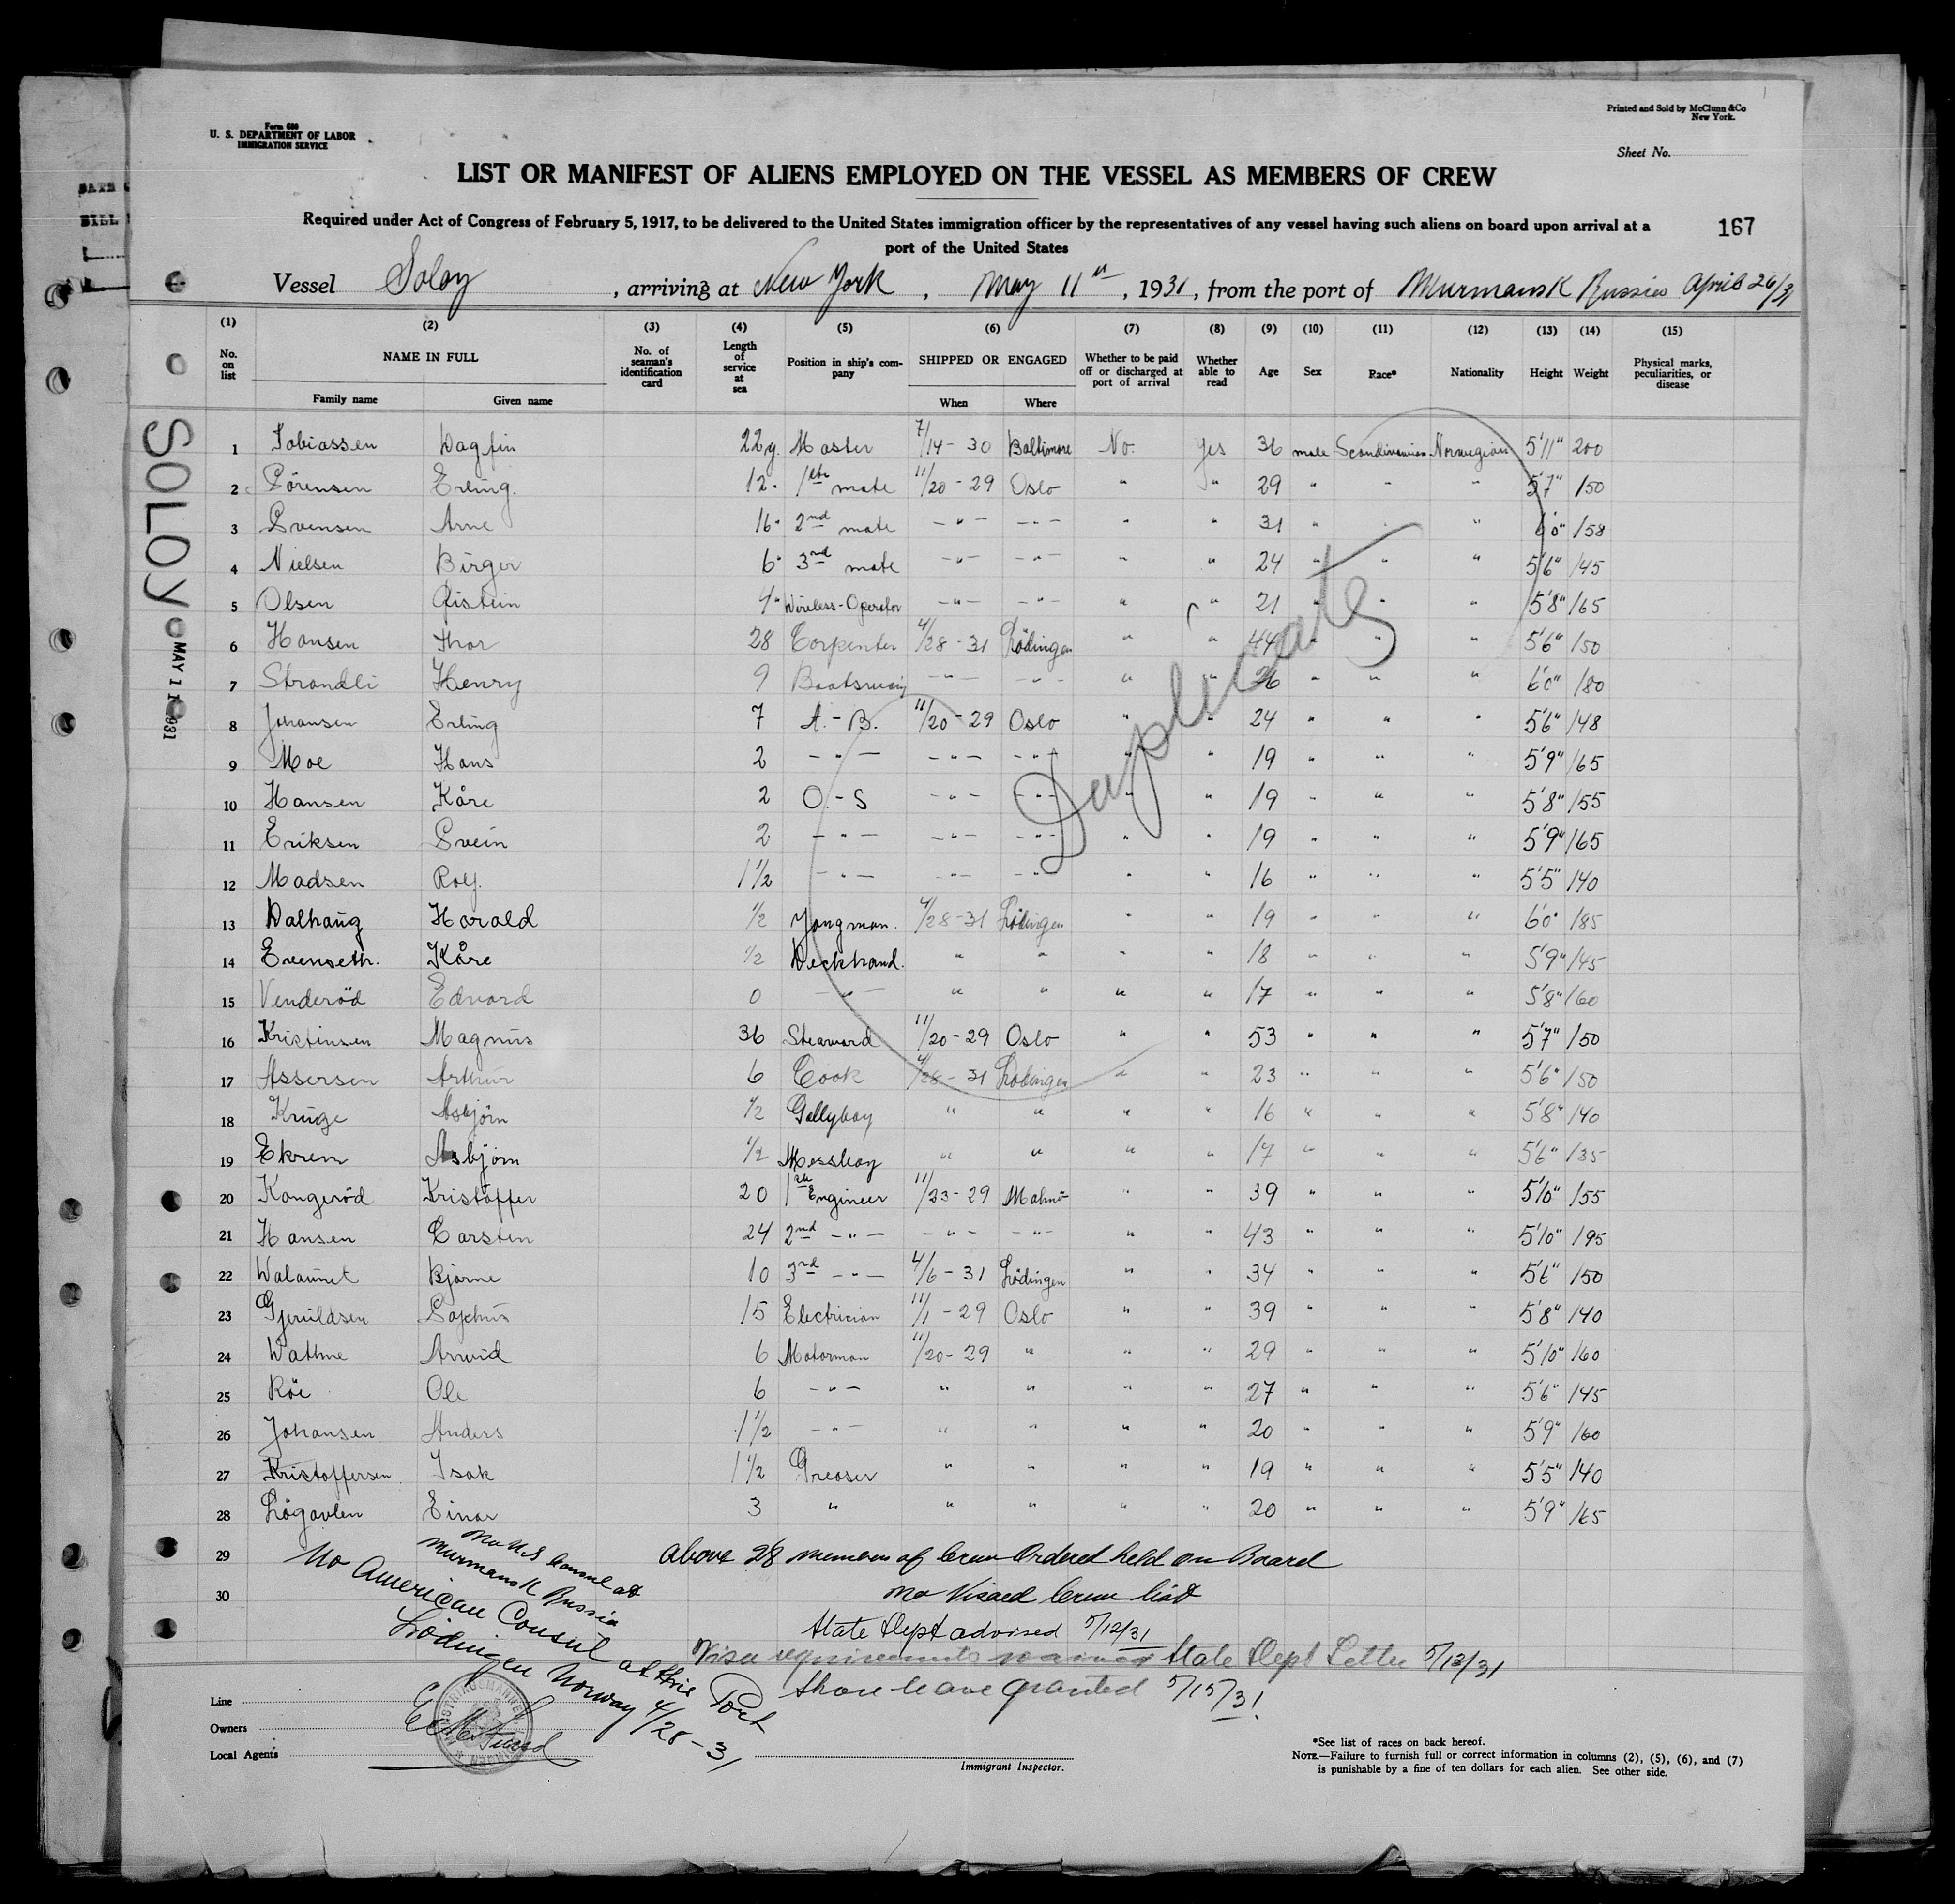 Form 680
U. S. DEPARTMENT OF LABOR
IMMIGRATION SERVICE
Printed and Sold by McClunn & Co
New York.
Sheet No.
LIST OR MANIFEST OF ALIENS EMPLOYED ON THE VESSEL AS MEMBERS OF CREW
Required under Act of Congress of February 5, 1917, to be delivered to the United States immigration officer by the representatives of any vessel having such aliens on board upon arrival at a
port of the United States
167
Vessel Soloy, arriving at New York, May 11th, 1931, from the port of Murmansk Russia April 26/31
(1) (2) (3) (4) (5) (6) (7) (8) (9) (10) (11) (12) (13) (14) (15)
No. on list NAME IN FULL Family name Given name No. of seaman's identification card Length of service at sea Position in ship's company SHIPPED OR ENGAGED When Where Whether to be paid off or discharged at port of arrival Whether able to read Age Sex Race* Nationality Height Weight Physical marks, peculiarities, or disease
SOLOY
MAY 11 1931
Duplicate
1 Tobiassen Dagfin 22 y. Master 7/14-30 Baltimore No. Yes 36 male Scandinavian Norwegian 5'11" 200
2 Sörensen Erling. 12 " 1st mate 11/20-29 Oslo " " 29 " " " 5'7" 150
3 Svensen Arne 16 " 2nd mate -"- -"- " " 31 " " " 6'0" 158
4 Nielsen Birger 6 " 3rd mate -"- -"- " " 24 " " " 5'6" 145
5 Olsen Øistein Wireless-Operator -"- -"- " " 21 " " " 5'8" 165
6 Hansen Thor 28 Carpenter 4/28-31 Lödingen " " 44 " " " 5'6" 150
7 Strandli Henry 9 Boatswain -"- -"- " " " " " 6'0" 180
8 Johansen Erling 7 A.-B. 11/20-29 Oslo " " 24 " " " 5'6" 148
9 Moe Hans 2 -"- -"- -"- " " 19 " " " 5'9" 165
10 Hansen Kåre 2 O.-S -"- -"- " " 19 " " " 5'8" 155
11 Eriksen Svein 2 -"- -"- -"- " " 19 " " " 5'9" 165
12 Madsen Rolf. 1 1/2 -"- -"- -"- " " 16 " " " 5'5" 140
13 Dalhaug Harald 1/2 Yongman. 4/28-31 Lödingen " " 19 " " " 6'0" 185
14 Evenseth. Kåre 1/2 Deckhand. " " " " 18 " " " 5'9" 145
15 Venderöd Edvard 0 -"- " " " " 17 " " " 5'8" 160
16 Kristinsen Magnus 36 Stearward 11/20-29 Oslo " " 53 " " " 5'7" 150
17 Assersen Arthur 6 Cook 4/28-31 Lödingen " " 23 " " " 5'6" 150
18 Kruge Asbjörn 1/2 Gallyboy " " " " 16 " " " 5'8" 140
19 Ekrem Asbjörn 1/2 Messboy " " " " 17 " " " 5'6" 135
20 Kongeröd Kristoffer 20 1st Engineer 11/23-29 Malmö " " 39 " " " 5'10" 155
21 Hansen Carsten 24 2nd -"- -"- -"- " " 43 " " " 5'10" 195
22 Bjarne 10 3rd -"- 4/6-31 Lödingen " " 34 " " " 5'6" 150
23 Gjeruldsen Sophus 15 Electrician 11/1-29 Oslo " " 39 " " " 5'8" 140
24 Wathne Arwid 6 Motorman 11/20-29 " " " 29 " " " 5'10" 160
25 Röe Ole 6 -"- " " " " 27 " " " 5'6" 145
26 Johansen Anders 1 1/2 -"- " " " " 20 " " " 5'9" 160
27 Kristoffersen Isak 1 1/2 Greaser " " " " 19 " " " 5'5" 140
28 Lögavlen Einar 3 " " " " " 20 " " " 5'9" 165
29
30
No U.S Consul at
Murmansk Russia
No American Consul at this Port
Lödingen Norway 4/28-31
above 28 members of Crew Ordered held on Board
No Visaed Crew list
State Dept advised 5/12/31
Visa requirements waived State Dept Letter 5/13/31
Shore leave granted 5/15/31
Line
Owners
Local Agents
Immigrant Inspector.
*See list of races on back hereof.
NOTE.—Failure to furnish full or correct information in columns (2), (5), (6), and (7)
is punishable by a fine of ten dollars for each alien. See other side.